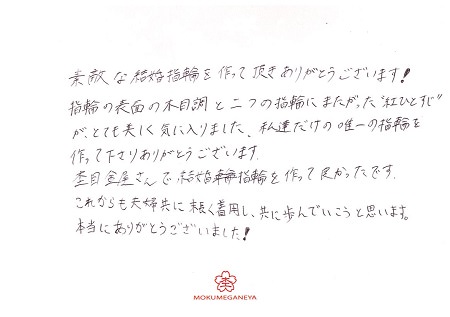 素敵な結婚指輪を作って頂きありがとうございます!
指輪の表面の木目調と二つの指輪にまたがった"紅ひとすじ"
が、とても美しく気に入りました。私達だけの唯一の指輪を
作って下さりありがとうございます。
杢目金屋さんで結婚指輪を作って良かったです。
これからも夫婦共に末長く着用し、共に歩んでいこうと思います。
本当にありがとうございました!
杢
MOKUMEGANEYA